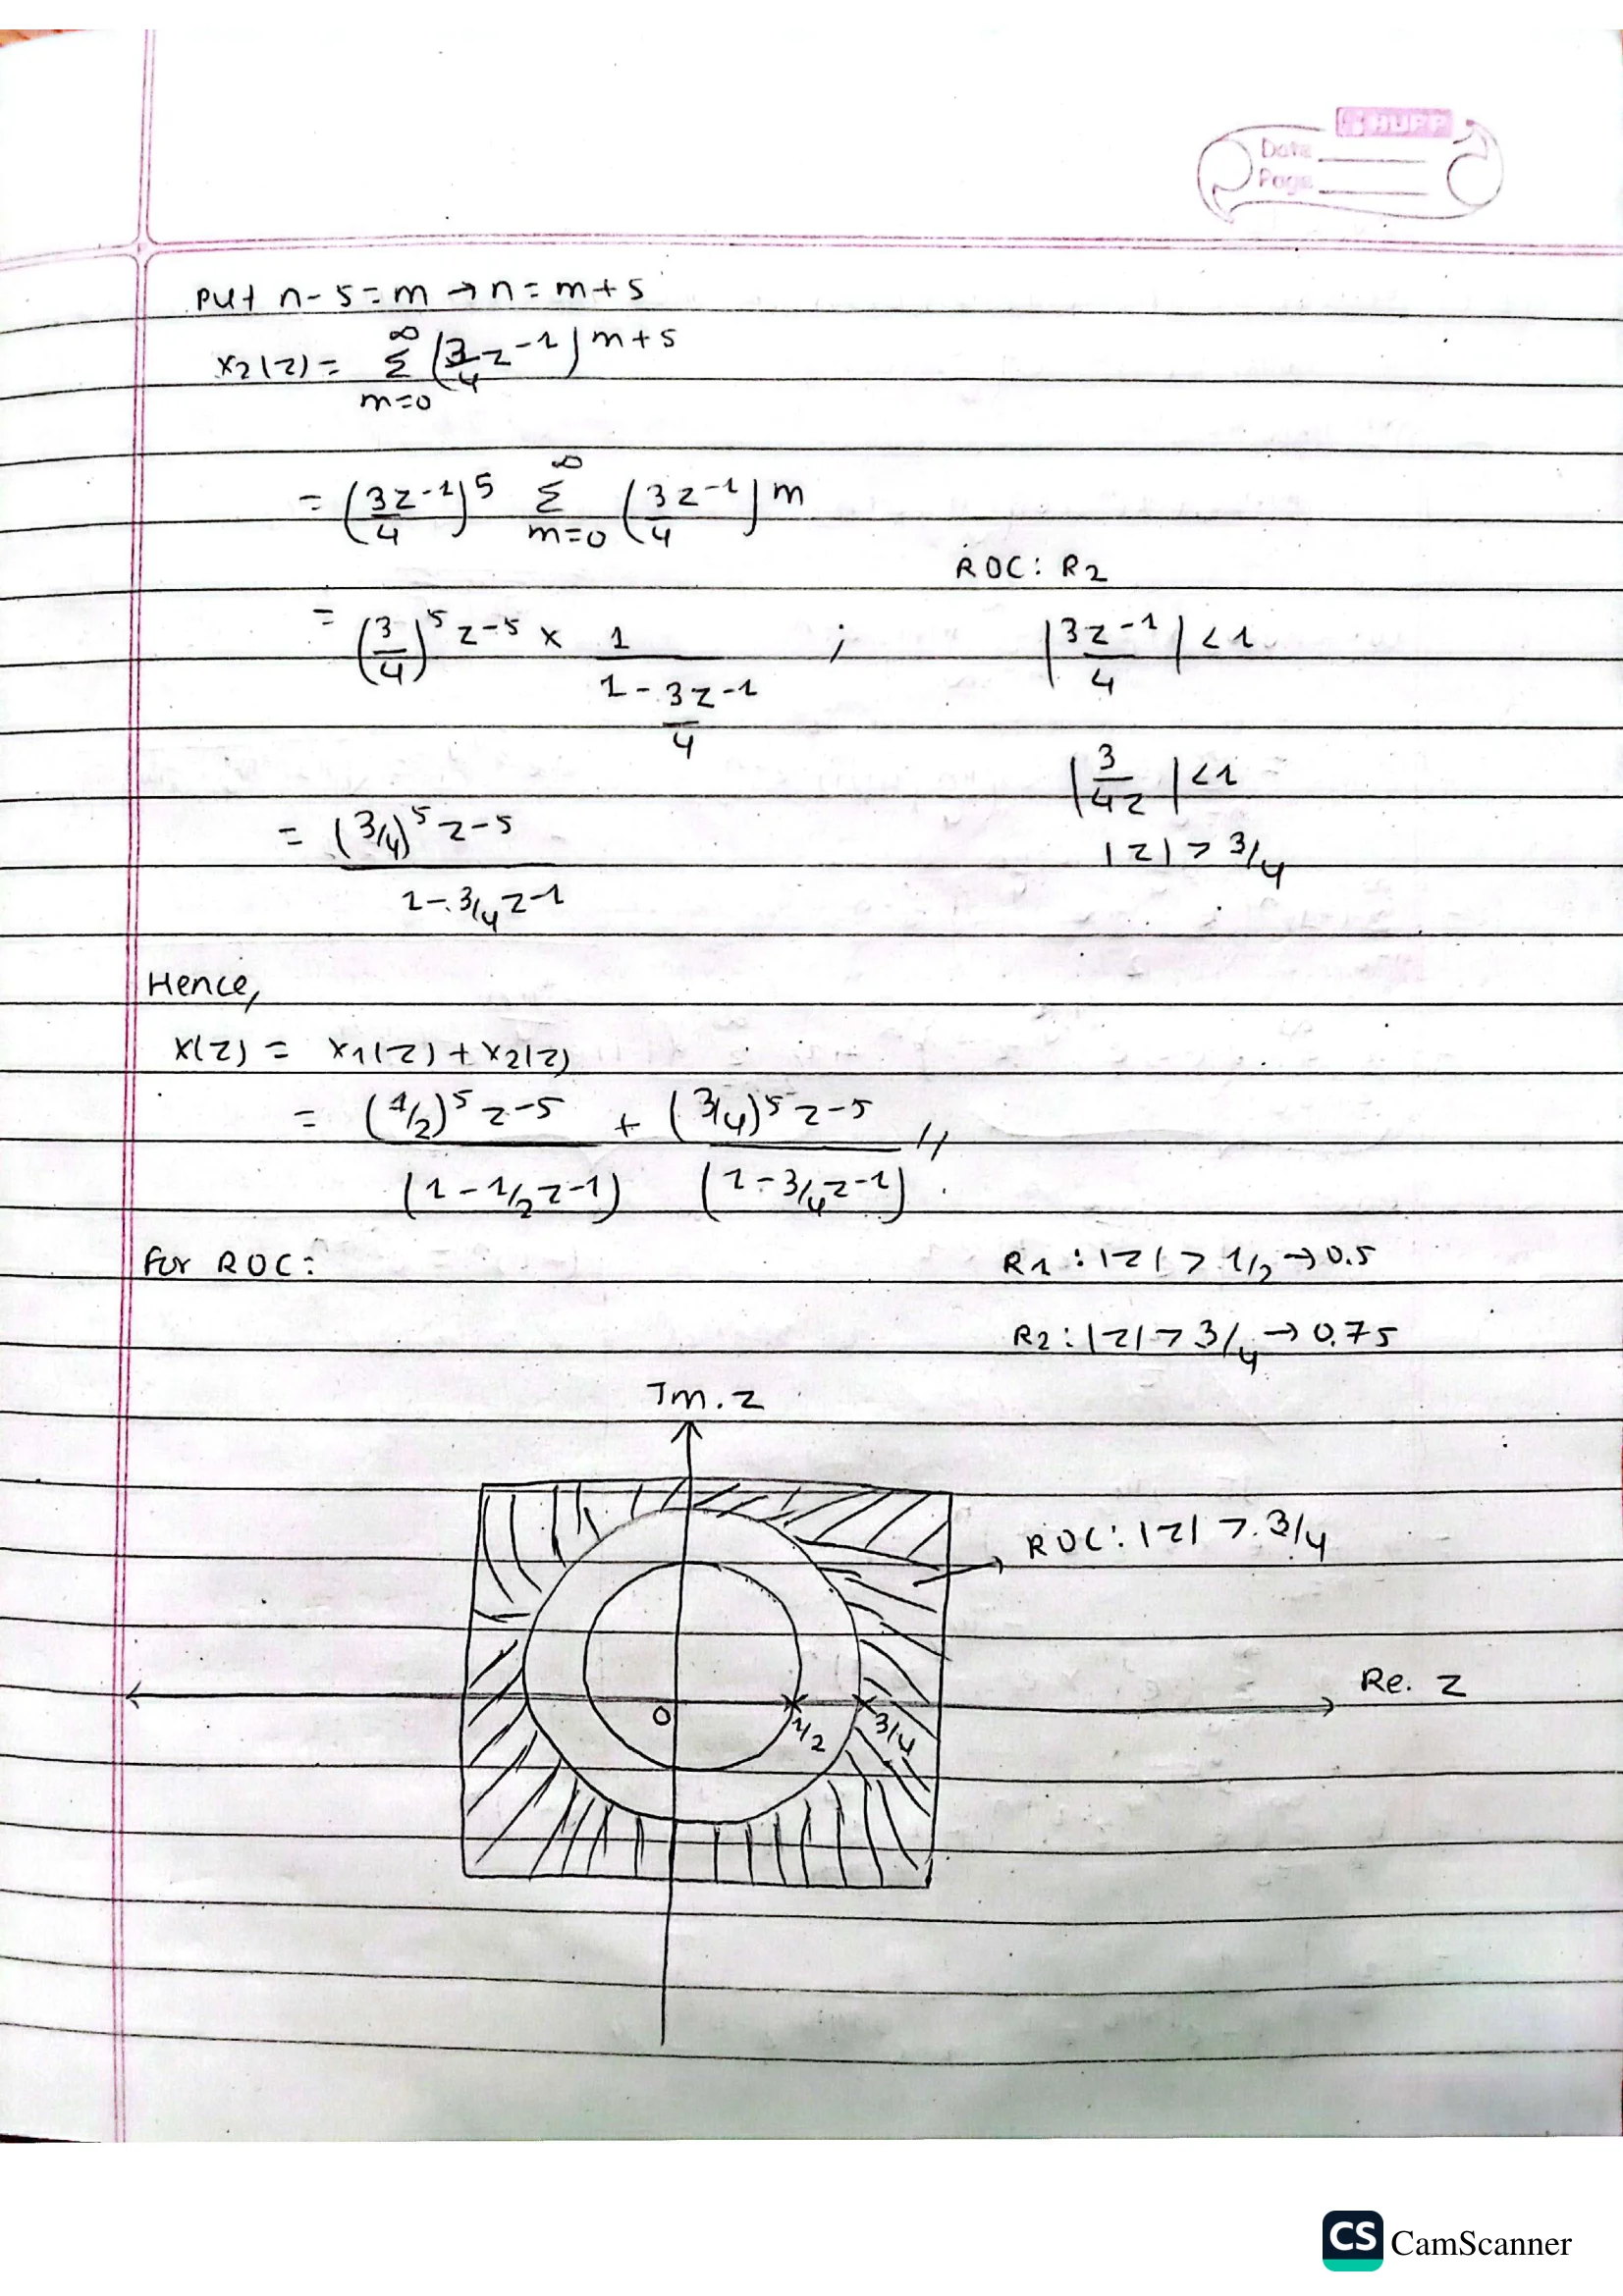 HUPP
Date
Page
Put n-5=m → n=m+5
x2(z) = ∞Σm=0 (3/4 z-1)m+5
= (3z-1/4)5 ∞Σm=0 (3z-1/4)m
ROC: R2
= (3/4)5 z-5 x 1/(1-3z-1/4) ; |3z-1/4| <1
|3/4z| <1
= (3/4)5 z-5/1-3/4z-1
|z| > 3/4
Hence,
x(z) = x1(z)+x2(z)
= (1/2)5 z-5/(1-1/2z-1) + (3/4)5 z-5/(1-3/4z-1) //
For ROC: R1 : |z| > 1/2 → 0.5
R2 : |z| > 3/4 → 0.75
Im. z
ROC: |z| > 3/4
Re. z
0
1/2
3/4
CS CamScanner